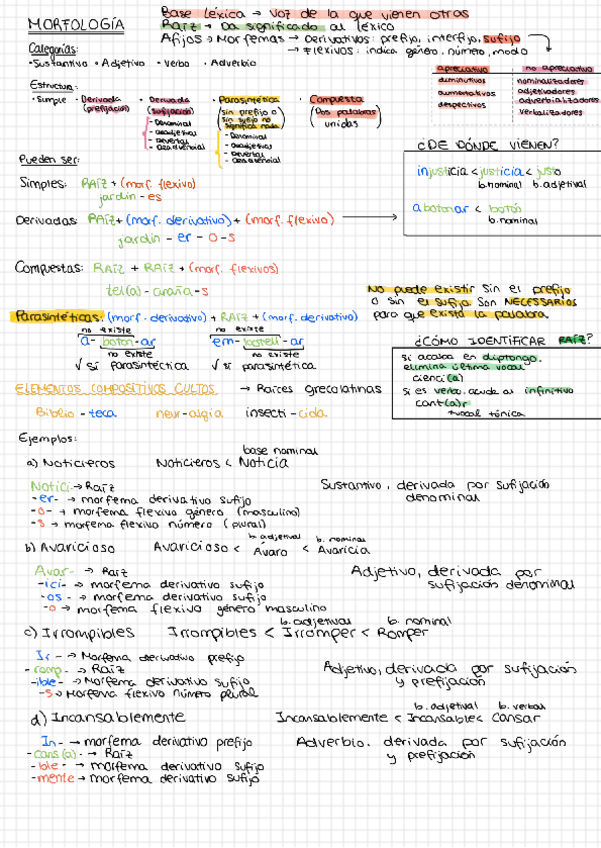 MORFOLOGÍA
Base léxica → Voz de la que vienen otras
Raíz → Da significado al léxico
Afijos → Morfemas → Derivativos: prefijo, interfijo, sufijo
→ Flexivos: indica género, número, modo
Categorías:
• Sustantivo • Adjetivo • Verbo • Adverbio
apreciativo no apreciativo
diminutivos nominalizadores
aumentativos adjetivadores
despectivos adverbializadores
verbalizadores
Estructura:
• Simple • Derivada (prefijación) • Derivada (sufijación) • Parasintética • Compuesta
(sin prefijo o sin sufijo no significa nada) (Dos palabras unidas)
- Denominal - Denominal
- Deadjetival - Deadjetival
- Deverbal - Deverbal
- Deadverbial - Deadverbial
Pueden ser:
Simples: RAÍZ + (morf. flexivo)
jardin - es
Derivadas: RAÍZ + (morf. derivativo) + (morf. flexivo)
jardin - er - o - s
Compuestas: RAÍZ + RAÍZ + (morf. flexivos)
tel(a) - araña - s
¿DE DÓNDE VIENEN?
injusticia < justicia < justo
b. nominal b. adjetival
abotonar < botón
b. nominal
Parasintéticas: (morf. derivativo) + RAÍZ + (morf. derivativo)
no existe no existe
a - boton - ar em - botell - ar
no existe no existe
√ sí parasintéctica √ sí parasintética
No puede existir sin el prefijo
o sin el sufijo. Son NECESARIOS
para que exista la palabra.
¿CÓMO IDENTIFICAR RAÍZ?
si acaba en diptongo,
elimina última vocal
cienci(a)
si es verbo, acude al infinitivo
cant(a)r
vocal tónica
ELEMENTOS COMPOSITIVOS CULTOS → Raíces grecolatinas
Biblio - teca neur - algia insecti - cida
Ejemplos:
base nominal
a) Noticieros Noticieros < Noticia
Notici- → Raíz
-er- → morfema derivativo sufijo
-o- → morfema flexivo género (masculino)
-s → morfema flexivo número (plural)
Sustantivo, derivada por sufijación
denominal
b. adjetival b. nominal
b) Avaricioso Avaricioso < Ávaro < Avaricia
Avar- → Raíz
-ici- → morfema derivativo sufijo
-os- → morfema derivativo sufijo
-o → morfema flexivo género masculino
Adjetivo, derivada por
sufijación denominal
b. adjetival b. nominal
c) Irrompibles Irrompibles < Irromper < Romper
Ir- → Morfema derivativo prefijo
-romp- → Raíz
-ible- → Morfema derivativo sufijo
-s → Morfema flexivo número plural
Adjetivo, derivada por sufijación
y prefijación
b. adjetival b. verbal
d) Incansablemente Incansablemente < Incansable < Cansar
In- → morfema derivativo prefijo
-cans(a)- → Raíz
-ble- → morfema derivativo sufijo
-mente → morfema derivativo sufijo
Adverbio, derivada por sufijación
y prefijación